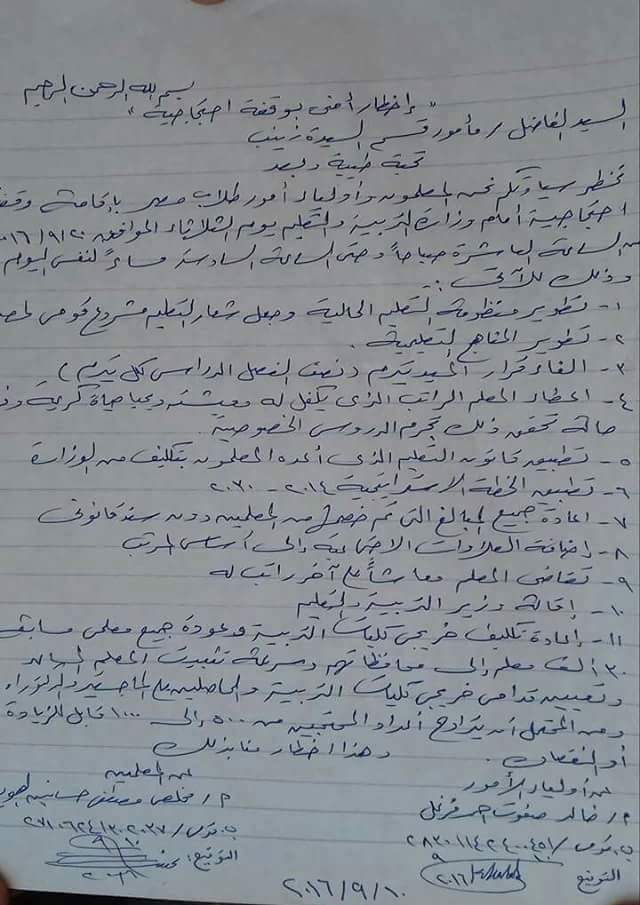 بسم الله الرحمن الرحيم
" إخطار أمنى بوقفة احتجاجية "
السيد الفاضل / مأمور قسم السيدة زينب
تحية طيبة وبعد
نخطر سيادتكم نحن المعلمون وأولياء أمور طلاب مصر بإقامة وقفة
احتجاجية أمام وزارة التربية والتعليم يوم الثلاثاء الموافق ٢٠١٦/٩/٢٠
من الساعة العاشرة صباحاً وحتى الساعة السادسة مساءً لنفس اليوم
وذلك للآتى :-
١- تطوير منظومة التعليم الحالية وجعل شعار التعليم مشروع قومى لمصر
٢- تطوير المناهج التعليمية .
٣- الغاء قرار الميدتيرم ( نصف الفصل الدراسى كل تيرم )
٤- اعطاء المعلم الراتب الذى يكفل له معيشته ويحيا حياة كريمة وفى
حالة تحقق ذلك تجرم الدروس الخصوصية .
٥- تطبيق قانون التعليم الذى أعده المعلمون بتكليف من الوزارة
٦- تطبيق الخطة الاستراتيجية ٢٠١٤ - ٢٠٣٠
٧- اعادة جميع المبالغ التى تم خصمها من المعلمين دون سند قانونى
٨- إضافة العلاوات الاجتماعية إلى أساسى المرتب
٩- تقاضى المعلم معاشاً على آخر راتب له
١٠- إقالة وزير التربية والتعليم
١١- إعادة تكليف خريجى كليات التربية وعودة جميع معلمى مسابقة
٣٠ ألف معلم إلى محافظاتهم وسرعة تثبيت المعلم المساعد
وتعيين قدامى خريجى كليات التربية والحاصلين على الماجستير والدكتوراه
ومن المحتمل أن يتراوح أعداد المحتجين من ٥٠٠ إلى ١٠٠٠ قابل للزيادة
أو النقصان . وهذا اخطار منا بذلك
عن أولياء الأمور
م / خالد صفوت
ب . قومى / ٢٨٣٠١١٤٢٤٠٠٤٥١
التوقيع
عن المعلمين
م / مخلص مصطفى
ب . قومى / ٢٧١٠٦٢٤١٣٠٢٠٣٧
التوقيع :
٢٠١٦/٩/١٠